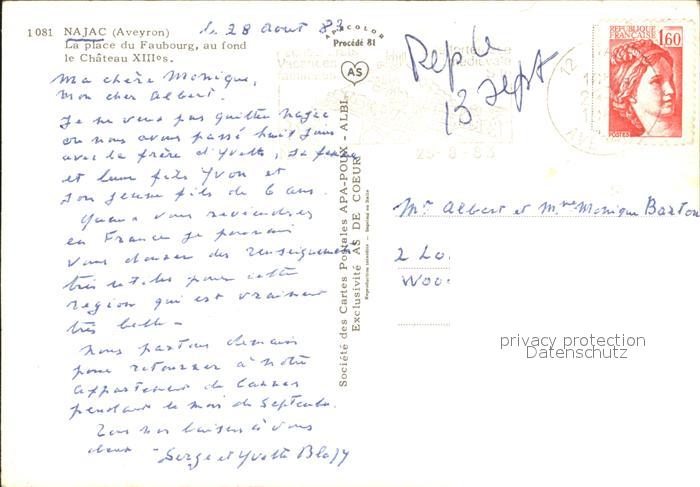 1081 NAJAC (Aveyron)
La place du Faubourg, au fond
le Château XIIIes.
le 28 août 83
APACOLOR
Procédé 81
AS
Ma chère Monique,
Mon cher Albert.
Je ne veux pas quitter Najac
où nous avons passé huit jours
avec le frère d'Yvette, sa femme
et leur fils Yvon et
son jeune fils de 6 ans.
Quand vous reviendrez
en France je pourrai
vous donner des renseignements
très utiles pour cette
région qui est vraiment
très belle -
Nous partons demain
pour retourner à notre
appartement de Cannes
pendant le mois de Septembre.
Tous nos baisers à vous
deux Serge et Yvette
Société des Cartes Postales APA-POUX - ALBI
Exclusivité AS DE COEUR
Reproduction interdite - Imprimé en Italie
Reple
13 sept
Vacances
médiévale
29-8-83
12
AVE
REPUBLIQUE
FRANÇAISE
1,60
POSTES
Mr Albert et Mme Monique Barton
2 Lo
Woo
privacy protection
Datenschutz